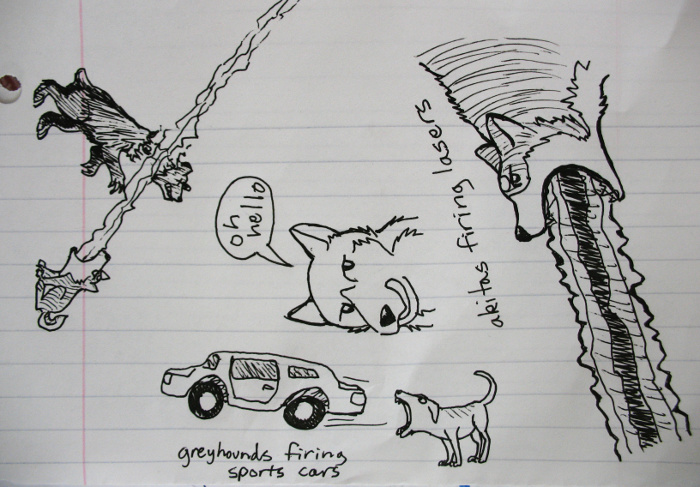 oh
hello
akitas firing lasers
greyhounds firing
sports cars